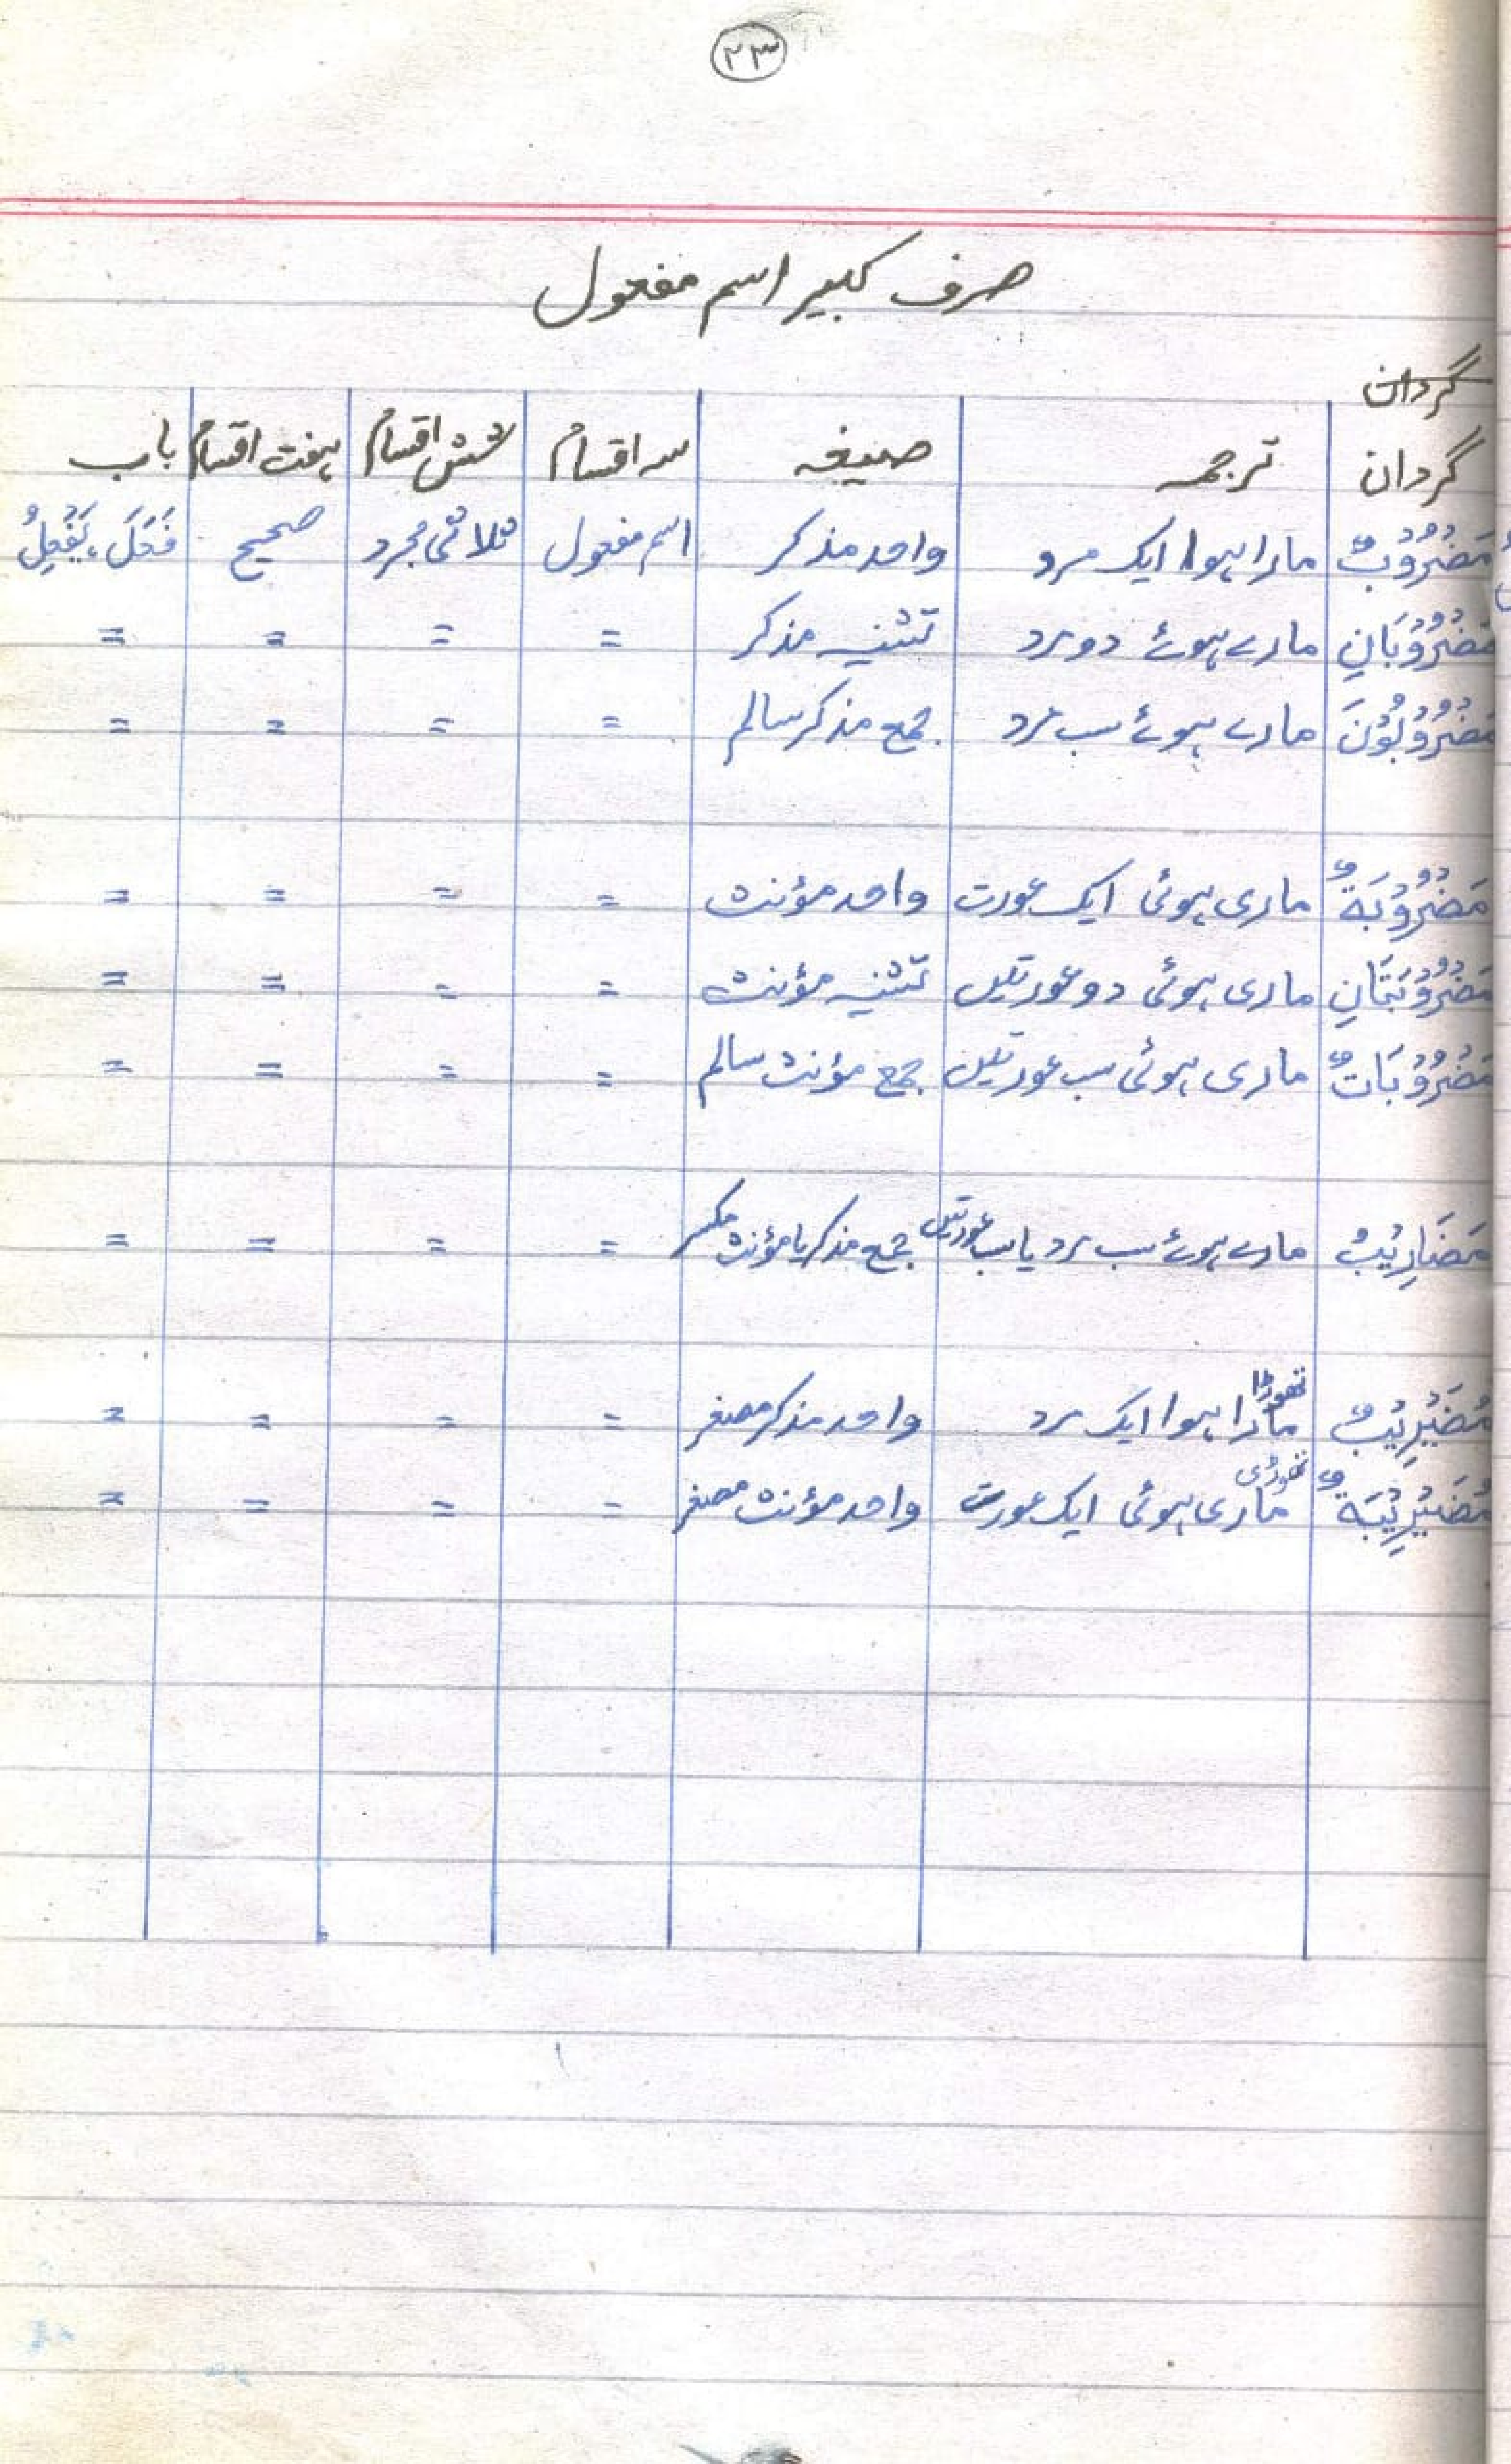 ٢٣
صرف کبیر اسم مفعول
گردان
گردان ترجمہ صیغہ سہ اقسام شش اقسام ہفت اقسام باب
مَضْرُوْبٌ مارا ہوا ایک مرد واحد مذکر اسم مفعول ثلاثی مجرد صحیح فَعَلَ، یَفْعِلُ
مَضْرُوْبَانِ مارے ہوئے دو مرد تثنیہ مذکر = = = =
مَضْرُوْبُوْنَ مارے ہوئے سب مرد جمع مذکر سالم = = = =
مَضْرُوْبَةٌ ماری ہوئی ایک عورت واحد مؤنث = = = =
مَضْرُوْبَتَانِ ماری ہوئی دو عورتیں تثنیہ مؤنث = = = =
مَضْرُوْبَاتٌ ماری ہوئی سب عورتیں جمع مؤنث سالم = = = =
مَضَارِیْبُ مارے ہوئے سب مرد یا سب عورتیں جمع مذکر یا مؤنث مکسر = = = =
مُضَیْرِیْبٌ تھوڑا مارا ہوا ایک مرد واحد مذکر مصغر = = = =
مُضَیْرِیْبَةٌ تھوڑی ماری ہوئی ایک عورت واحد مؤنث مصغر = = = =